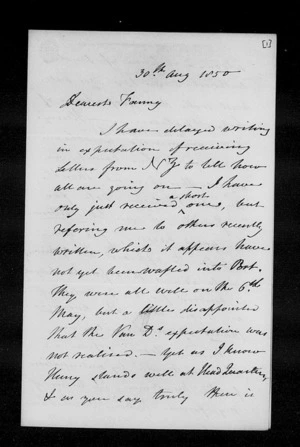 [1]
30th Aug 1850
Dearest Fanny
I have delayed writing
in expectation of receiving
letters from N Z to tell how
all are going on — I have
only just received a short one, but
refering me to others recently
written, which it appears have
not yet been wafted into Port.
They were all well on the 6th
May, but a little disappointed
that the Van Ds expectation was
not realised. — Yet as I know
Henry stands well at Head Quarters,
& as you say truly there is